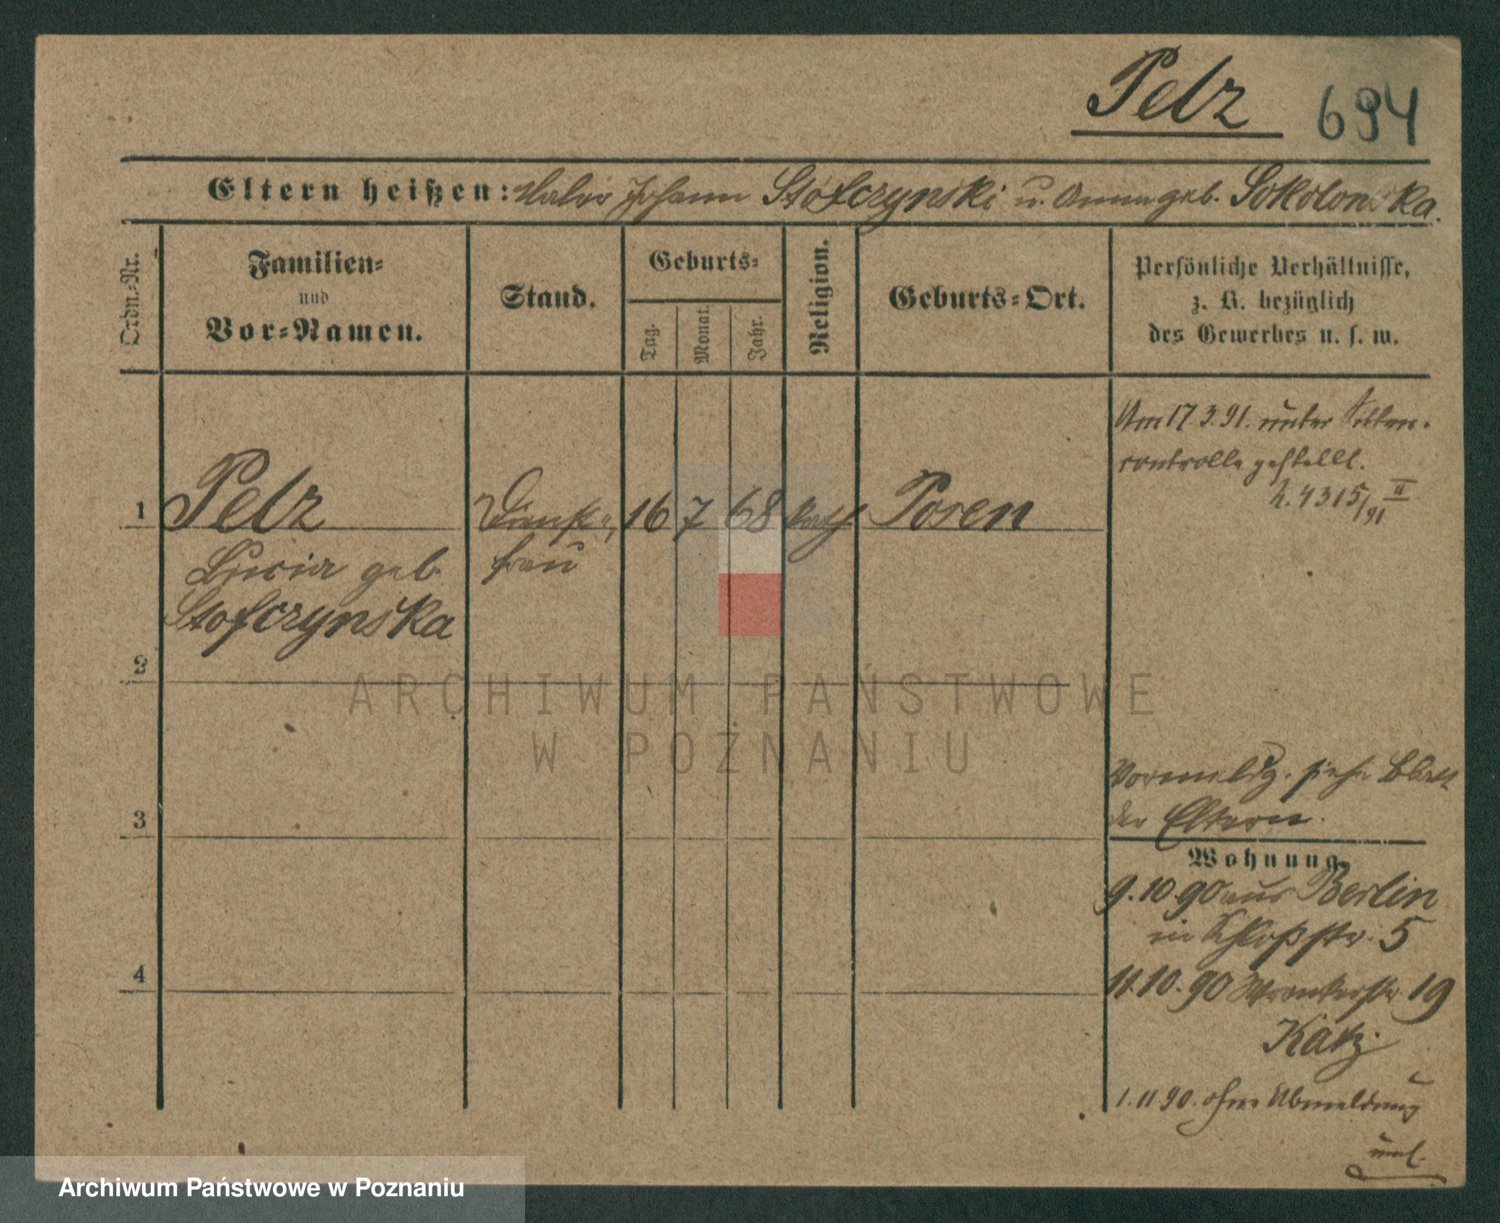 Pelz 694
Eltern heißen: Maler Johann Stofczynski u. Anna geb. Sokolowska.
Ordn.-Nr.
Familien-
und
Vor-Namen.
Stand.
Geburts-
Tag.
Monat.
Jahr.
Religion.
Geburts-Ort.
Persönliche Verhältnisse,
z. B. bezüglich
des Gewerbes u. s. w.
Am 17.3.91. unter Sitten-
controlle gestellt.
4315/91 II
1 Pelz Dienst- 16 7 68 kath Posen
Lucia geb frau
Stofczynska
2
ARCHIWUM PAŃSTWOWE
W POZNANIU
Vormeldg. siehe Blatt
der Eltern.
3
Wohnung.
9.10.90 aus Berlin
in Schloßstr. 5
4
11.10.90 Wronkerstr. 19
Katz
1.11 90. ohne Abmeldung
Archiwum Państwowe w Poznaniu